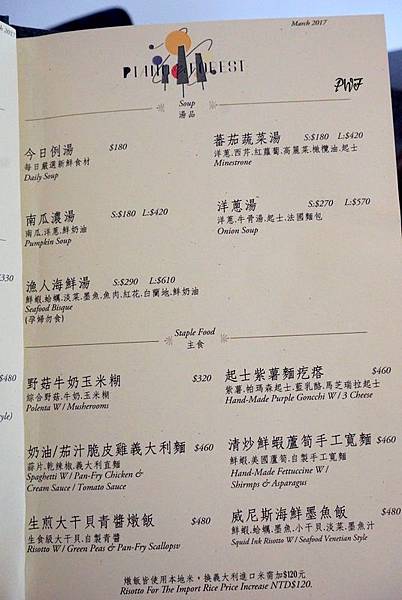 March 2017
PIANO FOREST
PWF
Soup
湯品
今日例湯 $180
每日嚴選新鮮食材
Daily Soup
蕃茄蔬菜湯 S:$180 L:$420
洋蔥.西芹.紅蘿蔔.高麗菜.橄欖油.起士
Minestrone
南瓜濃湯 S:$180 L:$420
南瓜.洋蔥.鮮奶油
Pumpkin Soup
洋蔥湯 S:$270 L:$570
洋蔥.牛骨湯.起士.法國麵包
Onion Soup
漁人海鮮湯 S:$290 L:$610
鮮蝦.蛤蠣.淡菜.墨魚.魚肉.紅花.白蘭地.鮮奶油
Seafood Bisque
(孕婦勿食)
Staple Food
主食
野菇牛奶玉米糊 $320
綜合野菇.牛奶.玉米糊
Polenta W / Musherooms
起士紫薯麵疙瘩 $460
紫薯.帕瑪森起士.藍乳酪.馬芝瑞拉起士
Hand-Made Purple Goncchi W / 3 Cheese
奶油/茄汁脆皮雞義大利麵 $460
蒜片.乾辣椒.義大利直麵
Spaghetti W / Pan-Fry Chicken &
Cream Sauce / Tomato Sauce
清炒鮮蝦蘆筍手工寬麵 $460
鮮蝦.美國蘆筍.自製手工寬麵
Hand-Made Fettuccine W /
Shirmps & Asparagus
生煎大干貝青醬燉飯 $480
生食級大干貝.自製青醬
Risotto W / Green Peas & Pan-Fry Scallopsv
威尼斯海鮮墨魚飯 $480
鮮蝦.蛤蠣.墨魚.小干貝.淡菜.墨魚汁
Squid Ink Risotto W / Seafood Venetian Style
燉飯皆使用本地米，換義大利進口米需加$120元
Risotto For The Import Rice Price Increase NTD$120.
2017
$330
$480
tyle)
$480